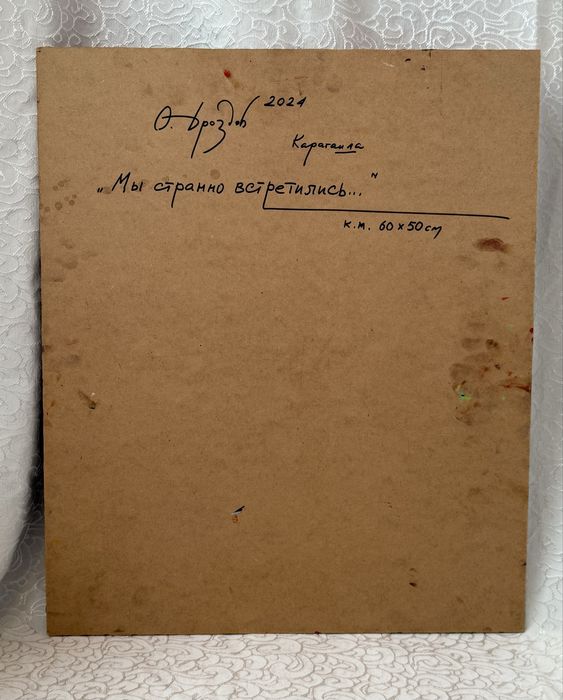 О. Дроздов 2024
Караганда
„Мы странно встретились..."
к.м. 60 х 50 см